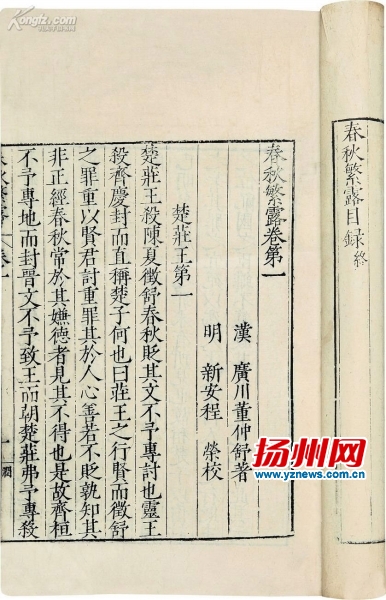 Kongfz.com
春秋繁露目録終
春秋繁露卷第一
漢 廣川董仲舒著
明 新安程 榮校
楚莊王第一
楚莊王殺陳夏徵舒春秋貶其文不予專討也靈王
殺齊慶封而直稱楚子何也曰莊王之行賢而徵舒
之罪重以賢君討重罪其於人心善若不貶孰知其
非正經春秋常於其嫌德者見其不得也是故齊桓
不予專地而封晉文不予致王而朝楚莊弗予專殺
扬州网
www.yznews.com.cn